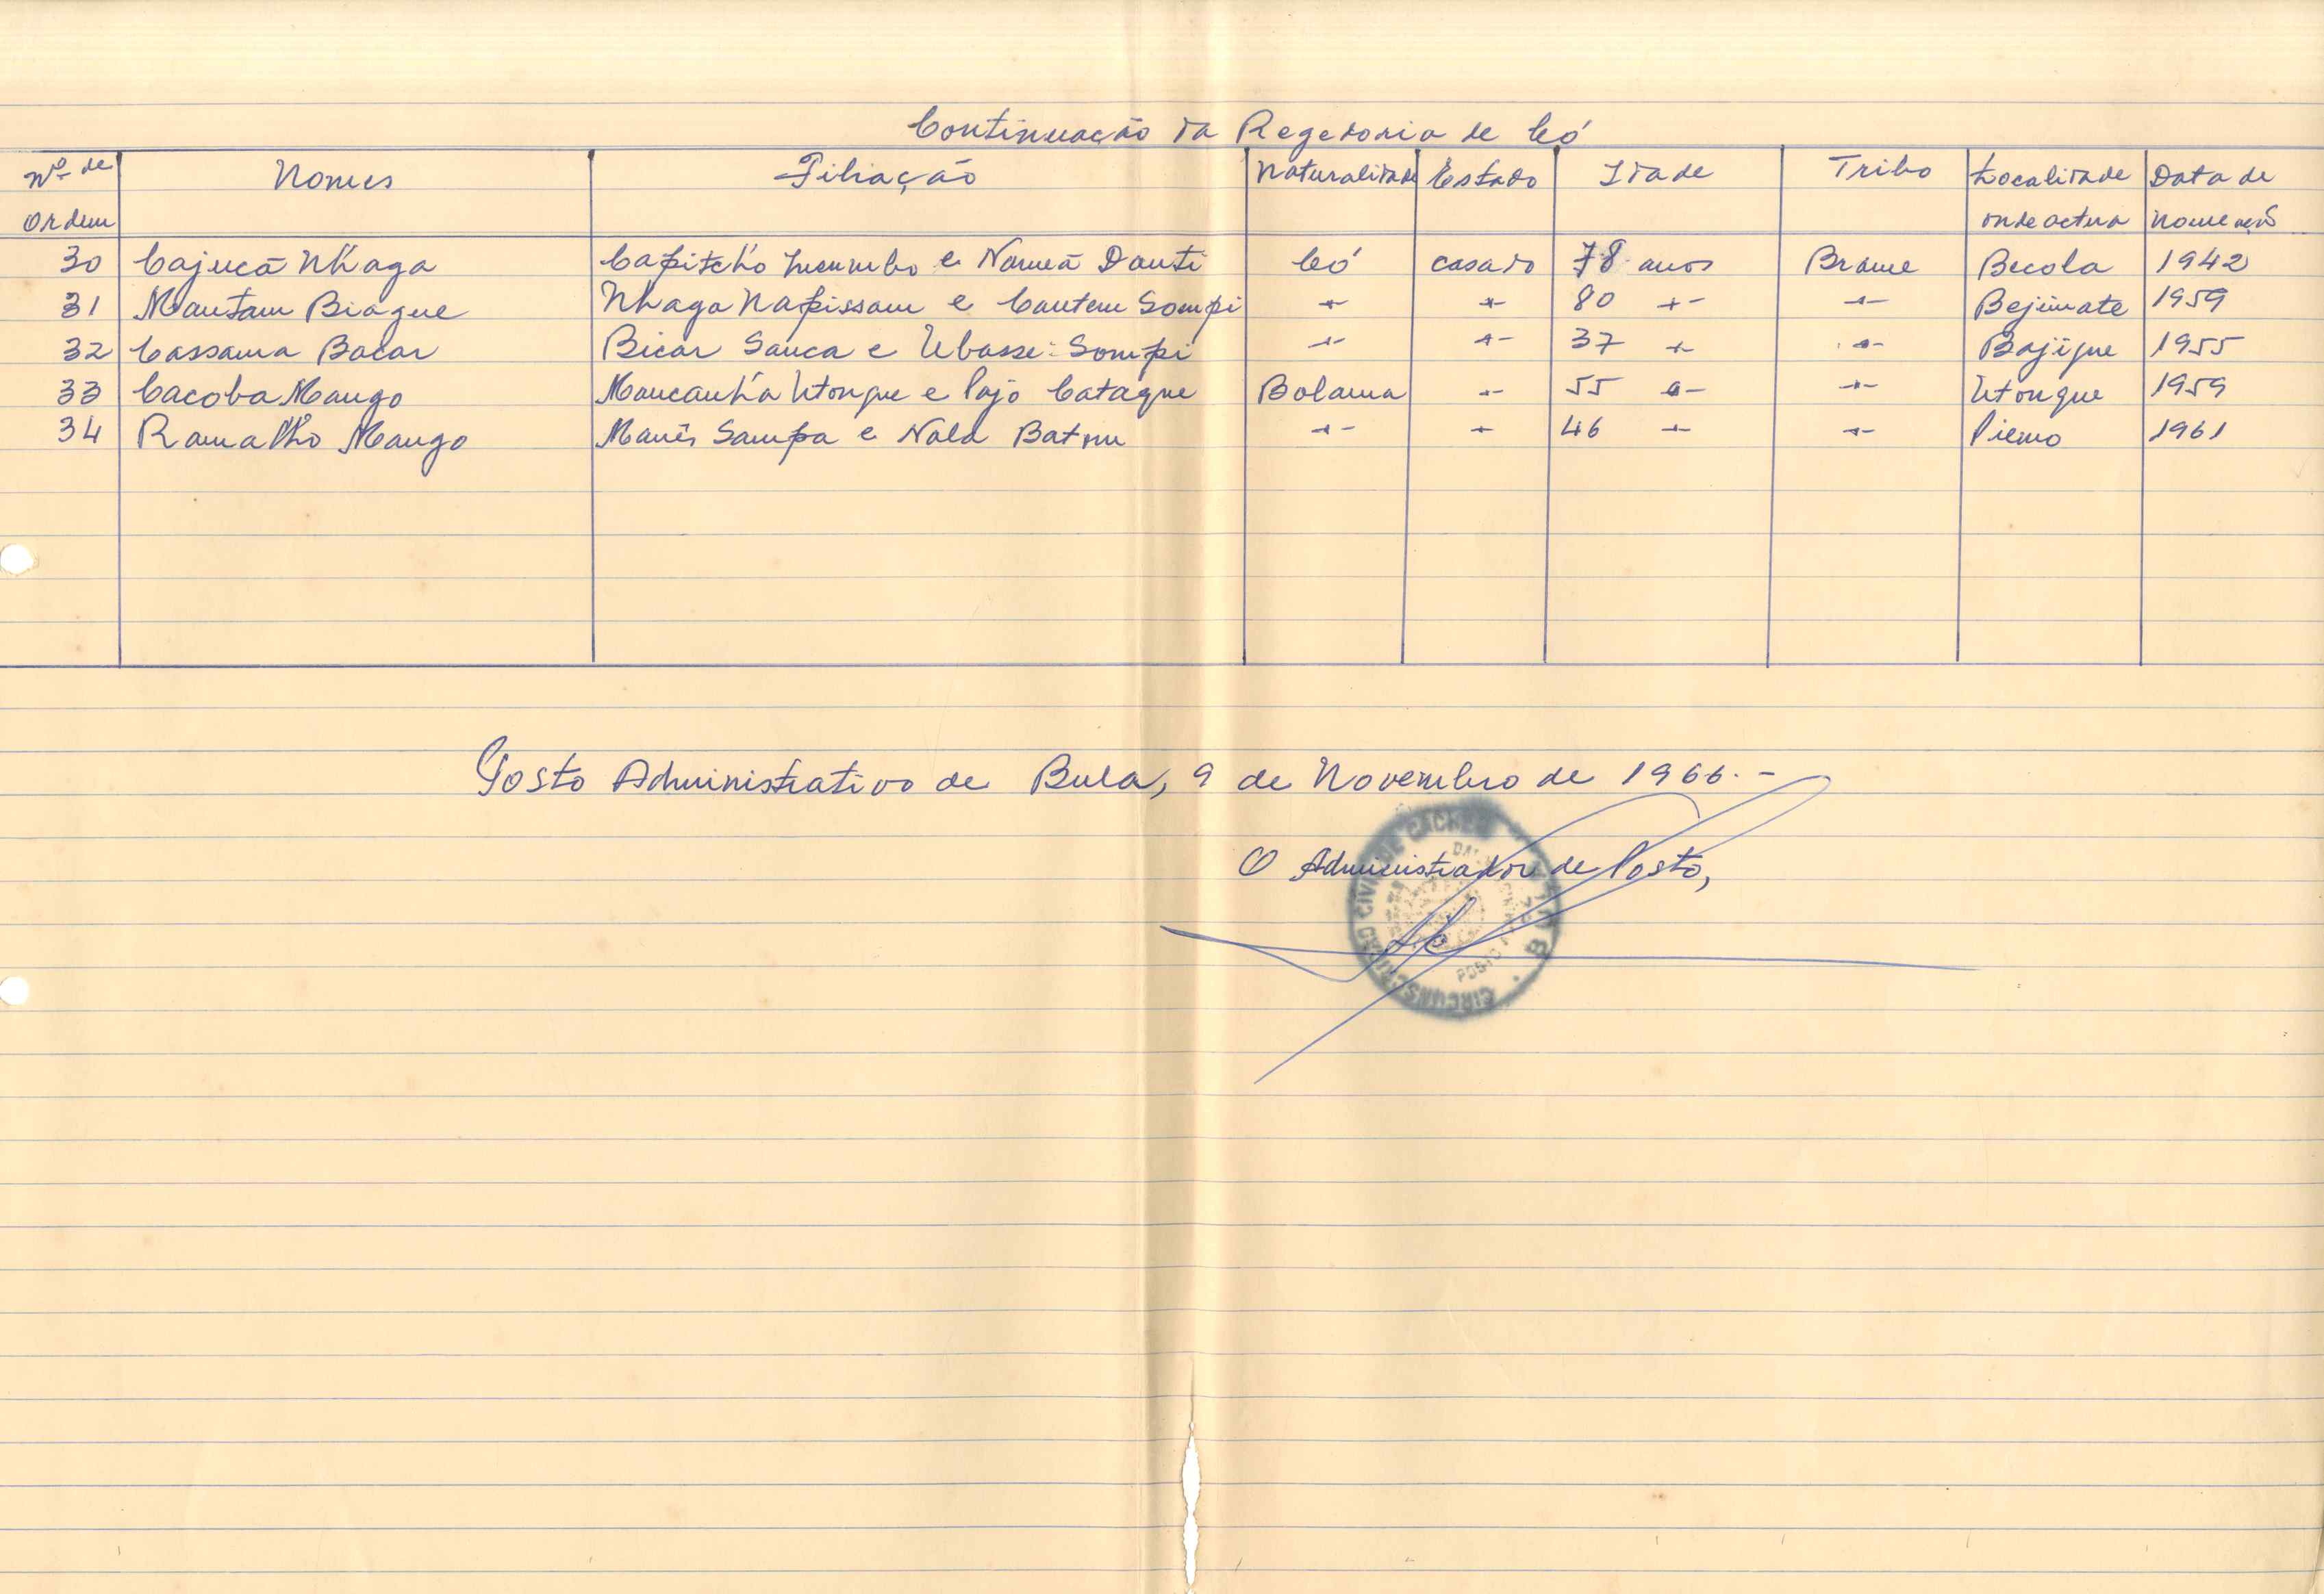 Continuação da Regedoria de Có
Nº de Ordem | Nomes | Filiação | Naturalidade | Estado | Idade | Tribo | Localidade onde actua | Data de nomeação
30 | Cajucã Nhaga | Capitcho Lucumbo e Nomeã Dauti | Có | casado | 78 anos | Brame | Becola | 1942
31 | Mantam Biague | Nhaga Napissam e Cantem Sompi | -"- | -"- | 80 -"- | -"- | Bejimate | 1959
32 | Cassama Bacar | Bicar Sanca e Ubasse Sompi | -"- | -"- | 37 -"- | -"- | Bajique | 1955
33 | Cacoba Mango | Mancanha Utongue e Pajo Cataque | Bolama | -"- | 55 -"- | -"- | Utongue | 1959
34 | Ramalho Mango | Manês Sampa e Nala | -"- | -"- | 46 -"- | -"- | Piemo | 1961
Posto Administrativo de Bula, 9 de Novembro de 1966.-
O Administrador de Posto,
CIRCUNSCRIÇÃO CIVIL DE CACHEU
POSTO